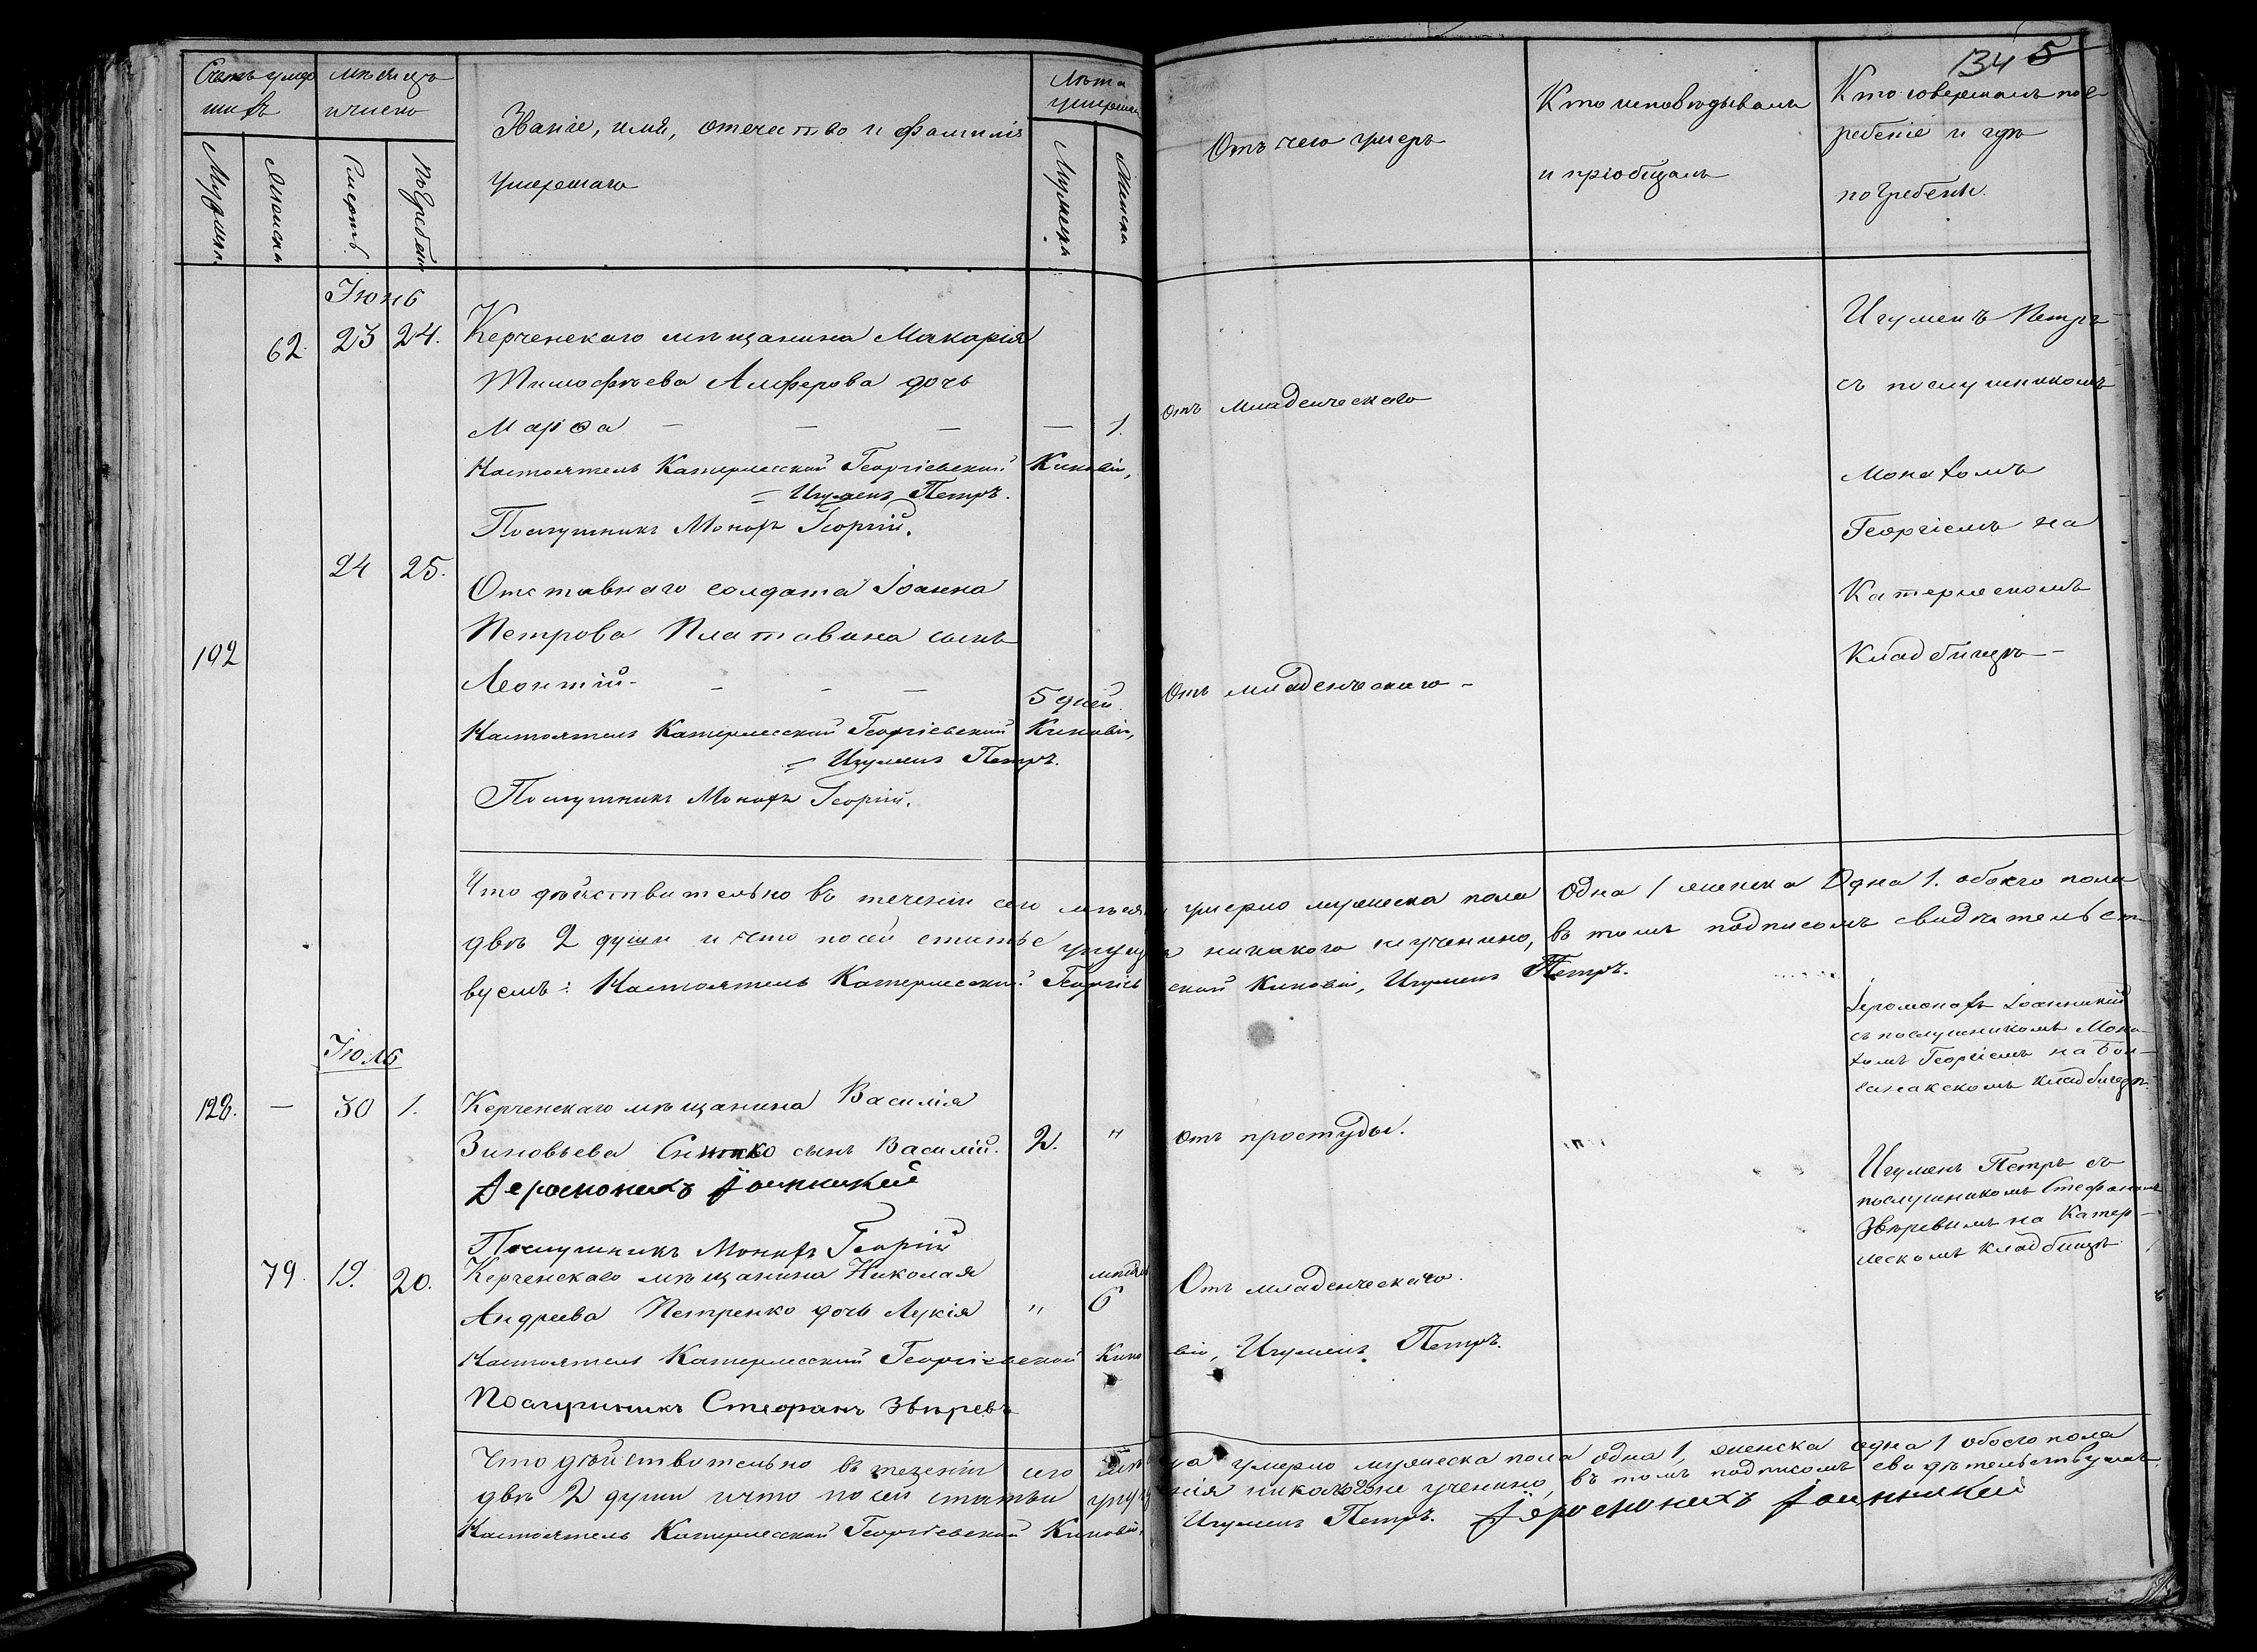 134 5
Счетъ умер
шихъ
мѣсяцъ
и число
Мужеска
Женска
Смерть
Погребені
Званіе, имя, отечество и фамилія
умершаго
Лѣта
умершаг
Мужеска
Женска
Отъ чего умеръ
Кто исповѣдывалъ
и пріобщалъ
Кто совершалъ пог-
ребеніе и гдѣ
погребены.
Іюнь
62. 23 24. Керченскаго мѣщанина Макарія
Тимофѣева Алферова дочь
Марѳа — — — — 1. отъ младенческаго
Настоятель Катерлесской Георгіевской Киновіи,
= Игуменъ Петръ.
Послушникъ Монахъ Георгій.
Игуменъ Петръ
съ послушникомъ
Монахомъ
Георгіемъ на
Катерлескомъ
Кладбищѣ —
24 25. Отставнаго солдата Іоанна
102 Петрова Платавина сынъ
Леонтій — — — — 5 дней. Отъ младенческаго —
Настоятель Катерлесской Георгіевской Киновіи,
= Игуменъ Петръ.
Послушникъ Монахъ Георгій.
Что дѣйствительно въ теченіи сего мѣсяц умерло мужеска пола одна 1 женска Одна 1. обоего пола
двѣ 2 души и что по сей статье упущ никакого не учинено, въ томъ подписомъ свидѣтельст
вуемъ: Настоятель Катерлесской Георгіев ской Киновіи, Игуменъ Петръ.
Іюль
128. — 30 1. Керченскаго мѣщанина Василія
Зиновьева сынъ Василій. 2. " отъ простуды. " "
Іеромонахъ Іоанникій
Послушникъ Монахъ Георгій
Іеромонахъ Іоанникій
съ послушникомъ Мона-
хомъ Георгіемъ на Бул-
ганакскомъ кладбищѣ.
79. 19. 20. Керченскаго мѣщанина Николая
мѣсяц
Андреева Петренко дочь Лукія " 6 Отъ младенческаго.
Настоятель Катерлесской Георгіевской Кино віи, Игуменъ Петръ.
Послушникъ Стефанъ Звѣревъ
Игуменъ Петръ съ
послушникомъ Стефаномъ
Звѣревымъ на Катер-
лескомъ кладбищѣ
Что дѣйствительно въ теченіи сего мѣ ца умерло мужеска пола одна 1, женска одна 1 обоего пола
двѣ 2 души и что по сей статьи упущ нія никакого не учинено, въ томъ подписомъ свидѣтельствуемъ.
Настоятель Катерлесской Георгіевской Киновіи, Игуменъ Петръ. Іеромонахъ Іоанникій